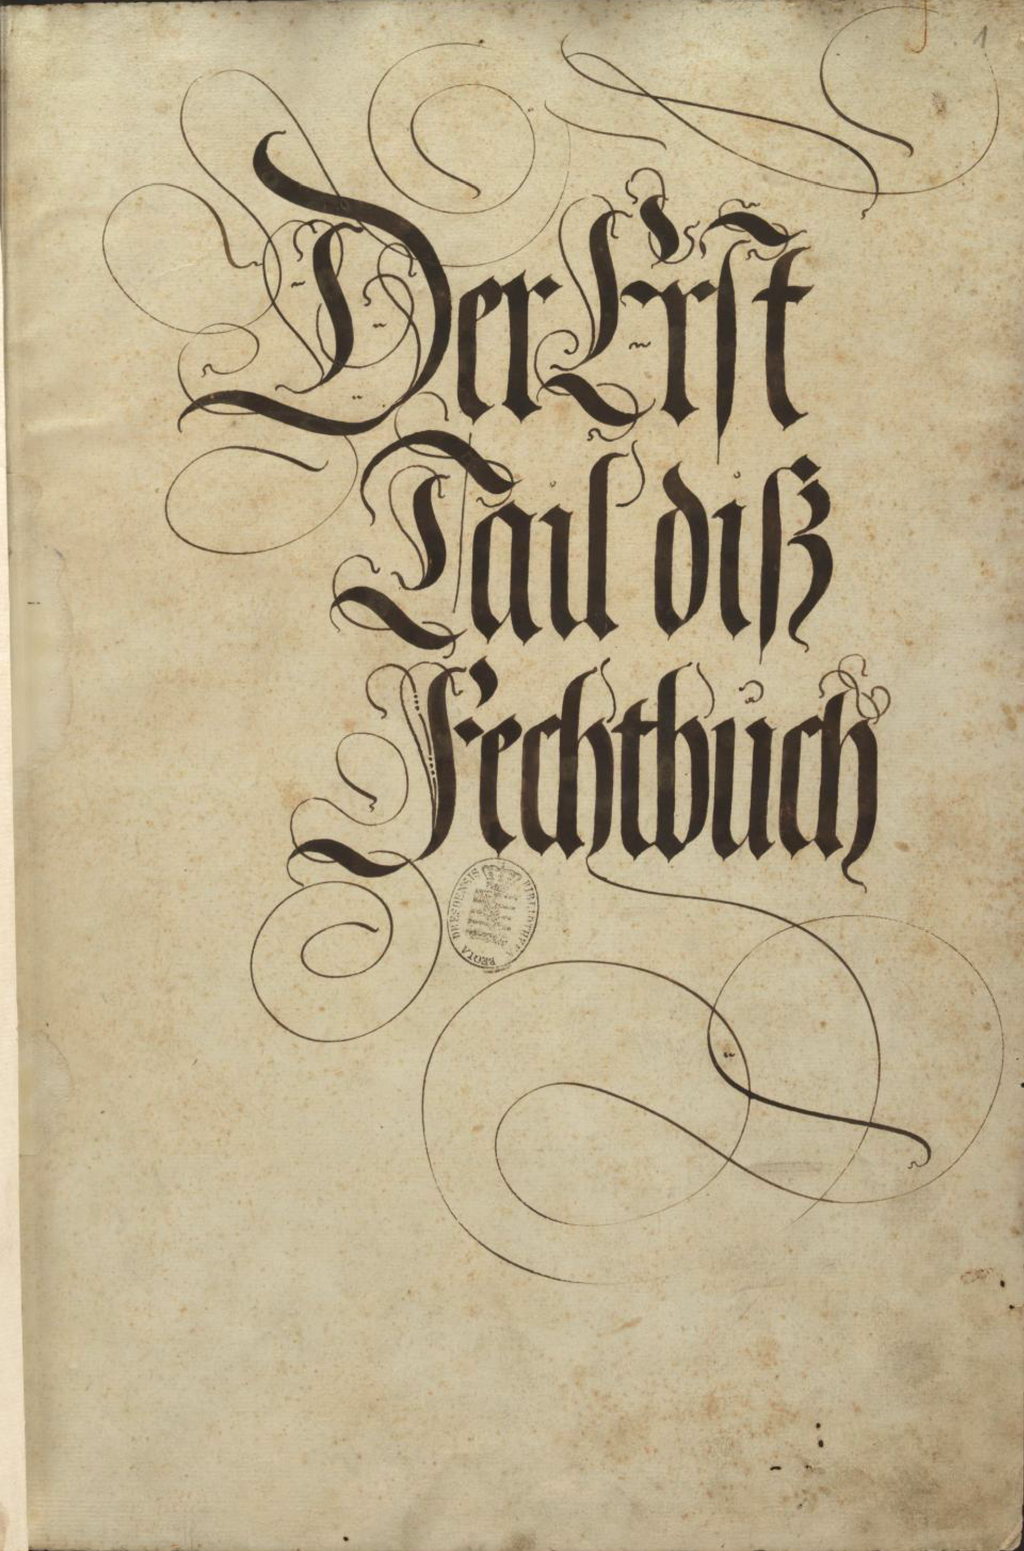 1
Der Erst
Tail diß
Fechtbůch
BIBLIOTHECA REGIA DRESDENSIS